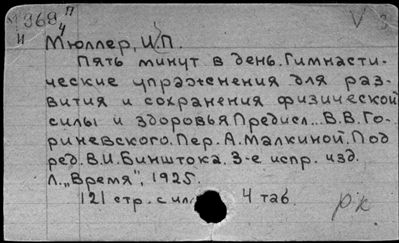 1968 "П"
V 3
Мюллер, И.П.
Пять минут в день. Гимнасти-
ческие упражнения для раз-
вития и сохранения физической
силы и здоровья. Предисл... В.В. Го-
риневского. Пер. А. Малкиной. Под
ред. В.И. Бинштока. 3-е испр. изд.
Л. „Время", 1925.
121 стр. с илл 4 таб.
рк